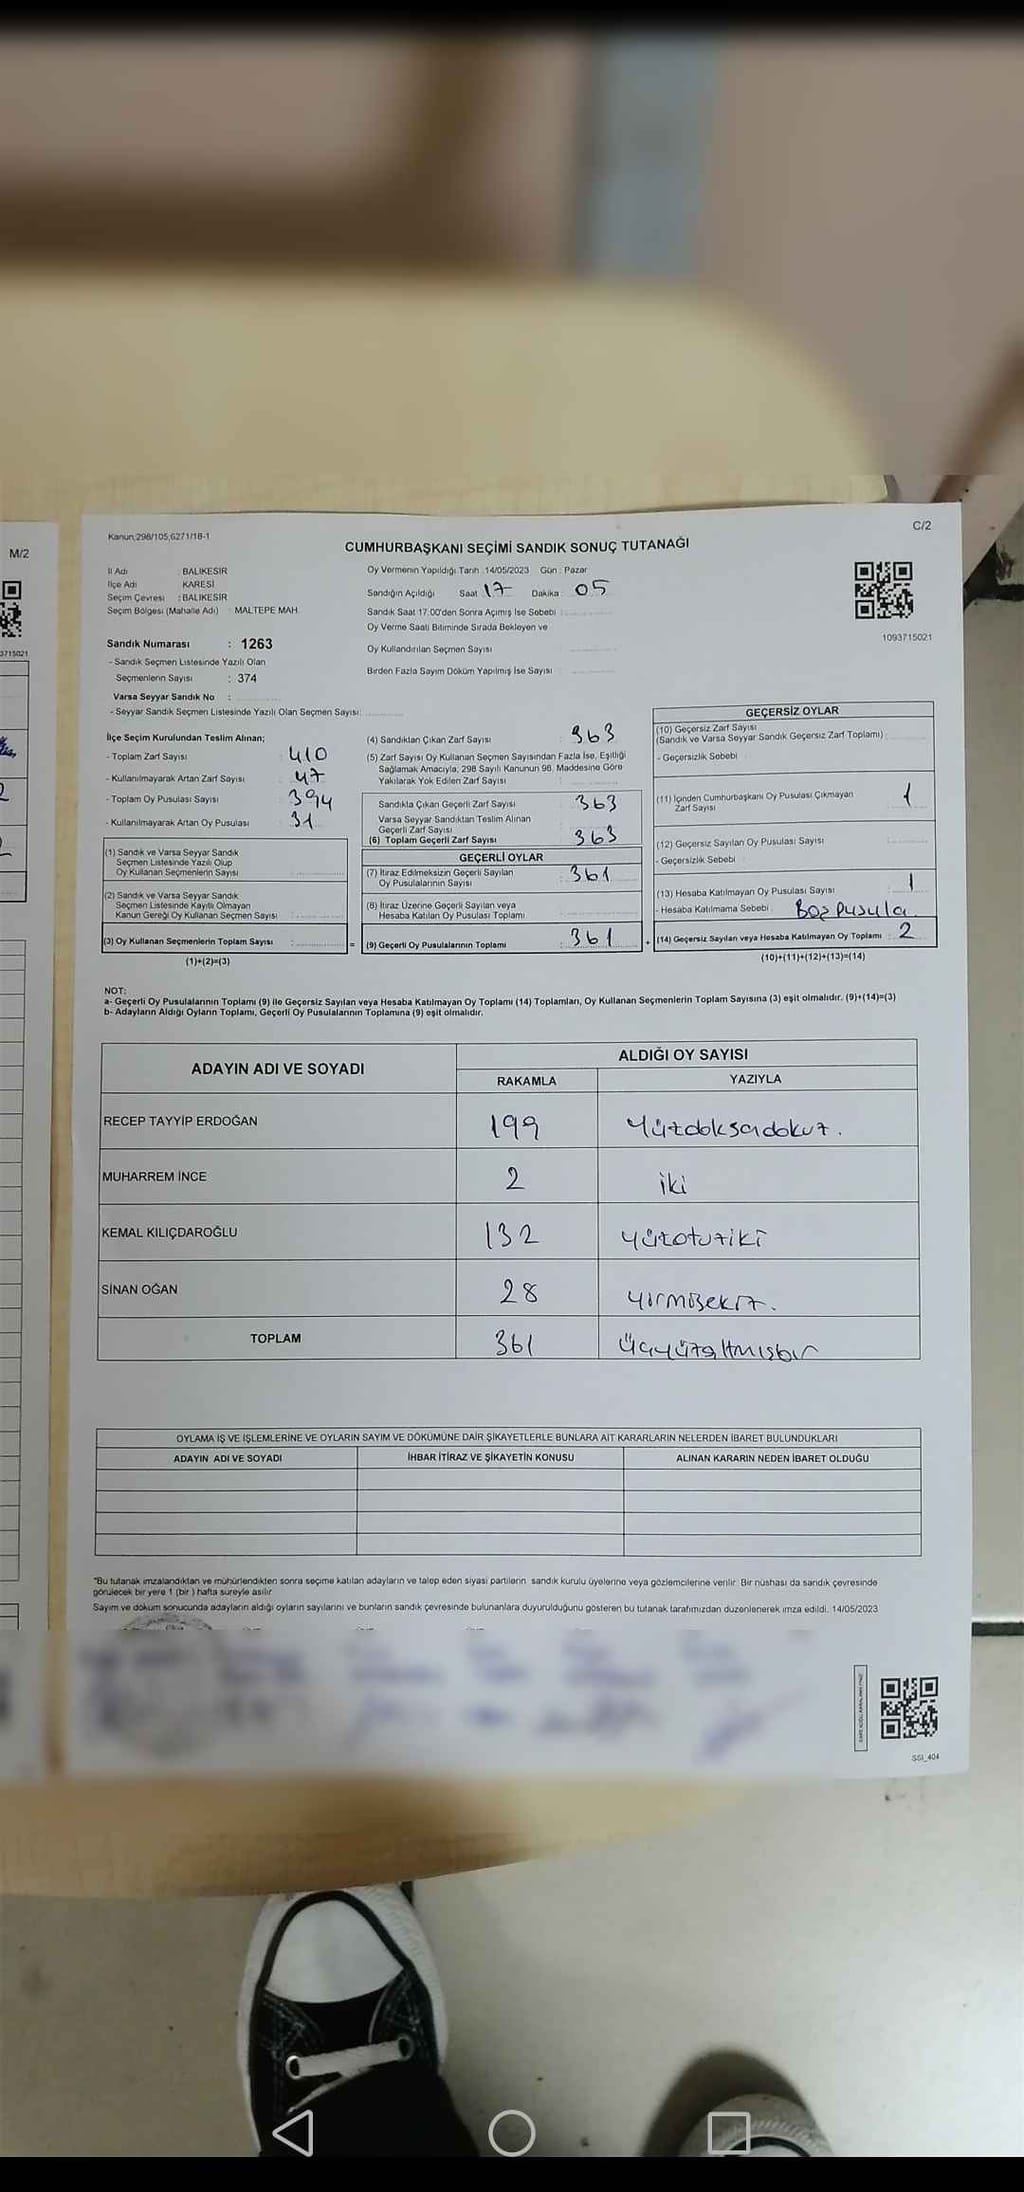 M/2
3715021
Kanun,298/105,6271/18-1
C/2
CUMHURBAŞKANI SEÇİMİ SANDIK SONUÇ TUTANAĞI
İl Adı BALIKESİR
İlçe Adı KARESİ
Seçim Çevresi : BALIKESİR
Seçim Bölgesi (Mahalle Adı) : MALTEPE MAH.
Oy Vermenin Yapıldığı Tarih :14/05/2023 Gün : Pazar
Sandığın Açıldığı Saat 17 Dakika : 05
Sandık Saat 17.00'den Sonra Açılmış İse Sebebi :
Oy Verme Saati Bitiminde Sırada Bekleyen ve
Oy Kullandırılan Seçmen Sayısı
Birden Fazla Sayım Döküm Yapılmış İse Sayısı :
1093715021
Sandık Numarası : 1263
- Sandık Seçmen Listesinde Yazılı Olan
Seçmenlerin Sayısı : 374
Varsa Seyyar Sandık No :
- Seyyar Sandık Seçmen Listesinde Yazılı Olan Seçmen Sayısı:
İlçe Seçim Kurulundan Teslim Alınan;
- Toplam Zarf Sayısı 410
- Kullanılmayarak Artan Zarf Sayısı 47
- Toplam Oy Pusulası Sayısı 394
- Kullanılmayarak Artan Oy Pusulası 31
(1) Sandık ve Varsa Seyyar Sandık
Seçmen Listesinde Yazılı Olup
Oy Kullanan Seçmenlerin Sayısı
(2) Sandık ve Varsa Seyyar Sandık
Seçmen Listesinde Kayıtlı Olmayan
Kanun Gereği Oy Kullanan Seçmen Sayısı
(3) Oy Kullanan Seçmenlerin Toplam Sayısı : =
(1)+(2)=(3)
(4) Sandıktan Çıkan Zarf Sayısı : 363
(5) Zarf Sayısı Oy Kullanan Seçmen Sayısından Fazla İse, Eşitliği
Sağlamak Amacıyla; 298 Sayılı Kanunun 98. Maddesine Göre
Yakılarak Yok Edilen Zarf Sayısı
Sandıkta Çıkan Geçerli Zarf Sayısı : 363
Varsa Seyyar Sandıktan Teslim Alınan
Geçerli Zarf Sayısı
(6) Toplam Geçerli Zarf Sayısı : 363
GEÇERLİ OYLAR
(7) İtiraz Edilmeksizin Geçerli Sayılan
Oy Pusulalarının Sayısı : 361
(8) İtiraz Üzerine Geçerli Sayılan veya
Hesaba Katılan Oy Pusulası Toplamı
(9) Geçerli Oy Pusulalarının Toplamı : 361 +
GEÇERSİZ OYLAR
(10) Geçersiz Zarf Sayısı
(Sandık ve Varsa Seyyar Sandık Geçersiz Zarf Toplamı)
- Geçersizlik Sebebi
(11) İçinden Cumhurbaşkanı Oy Pusulası Çıkmayan
Zarf Sayısı 1
(12) Geçersiz Sayılan Oy Pusulası Sayısı :
- Geçersizlik Sebebi
(13) Hesaba Katılmayan Oy Pusulası Sayısı : 1
- Hesaba Katılmama Sebebi : Boş pusula
(14) Geçersiz Sayılan veya Hesaba Katılmayan Oy Toplamı : 2
(10)+(11)+(12)+(13)=(14)
NOT:
a- Geçerli Oy Pusulalarının Toplamı (9) ile Geçersiz Sayılan veya Hesaba Katılmayan Oy Toplamı (14) Toplamları, Oy Kullanan Seçmenlerin Toplam Sayısına (3) eşit olmalıdır. (9)+(14)=(3)
b- Adayların Aldığı Oyların Toplamı, Geçerli Oy Pusulalarının Toplamına (9) eşit olmalıdır.
ADAYIN ADI VE SOYADI ALDIĞI OY SAYISI
RAKAMLA YAZIYLA
RECEP TAYYİP ERDOĞAN 199 Yüzdoksandokuz.
MUHARREM İNCE 2 iki
KEMAL KILIÇDAROĞLU 132 yüzotuziki
SİNAN OĞAN 28 yirmisekiz.
TOPLAM 361 Üçyüzaltmışbir
OYLAMA İŞ VE İŞLEMLERİNE VE OYLARIN SAYIM VE DÖKÜMÜNE DAİR ŞİKAYETLERLE BUNLARA AİT KARARLARIN NELERDEN İBARET BULUNDUKLARI
ADAYIN ADI VE SOYADI İHBAR İTİRAZ VE ŞİKAYETİN KONUSU ALINAN KARARIN NEDEN İBARET OLDUĞU
"Bu tutanak imzalandıktan ve mühürlendikten sonra seçime katılan adayların ve talep eden siyasi partilerin sandık kurulu üyelerine veya gözlemcilerine verilir. Bir nüshası da sandık çevresinde
görülecek bir yere 1 (bir ) hafta süreyle asılır.
Sayım ve döküm sonucunda adayların aldığı oyların sayılarını ve bunların sandık çevresinde bulunanlara duyurulduğunu gösteren bu tutanak tarafımızdan düzenlenerek imza edildi. 14/05/2023
SSI_404